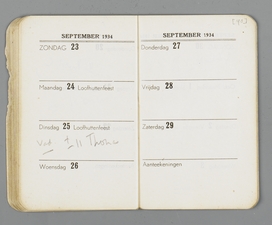 SEPTEMBER 1934
ZONDAG 23
Maandag 24 Loofhuttenfeest
Dinsdag 25 Loofhuttenfeest
Woensdag 26
SEPTEMBER 1934
Donderdag 27
Vrijdag 28
Zaterdag 29
Aanteekeningen